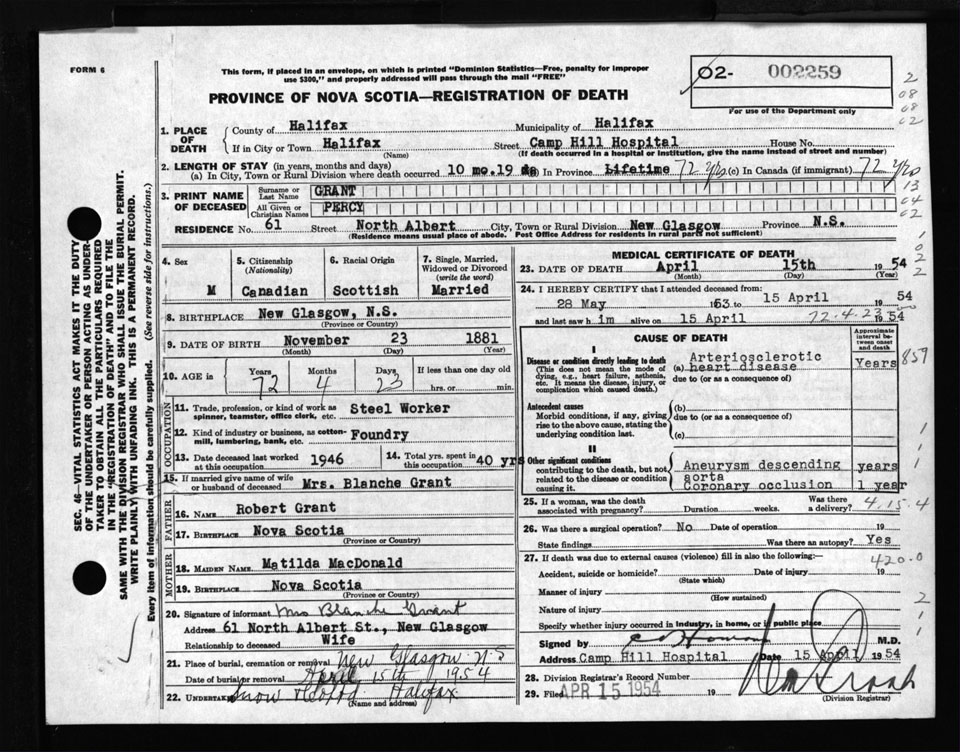 FORM 6
This form, if placed in an envelope, on which is printed "Dominion Statistics—Free, penalty for improper
use $300," and properly addressed will pass through the mail "FREE"
PROVINCE OF NOVA SCOTIA—REGISTRATION OF DEATH
02- 002259
For use of the Department only
2
08
08
02
1. PLACE OF DEATH
County of Halifax Municipality of Halifax
If in City or Town Halifax Street Camp Hill Hospital House No.
(Name) (If death occurred in a hospital or institution, give the name instead of street and number)
2. LENGTH OF STAY (in years, months and days)
(a) In City, Town or Rural Division where death occurred 10 mo.19 ds In Province Lifetime 72 yrs (c) In Canada (if immigrant) 72 yrs
13
04
02
3. PRINT NAME OF DECEASED
Surname or Last Name GRANT
All Given or Christian Names PERCY
RESIDENCE No. 61 Street North Albert City, Town or Rural Division New Glasgow Province N.S.
(Residence means usual place of abode. Post Office Address for residents in rural parts not sufficient)
4. Sex M
5. Citizenship (Nationality) Canadian
6. Racial Origin Scottish
7. Single, Married, Widowed or Divorced (write the word) Married
8. BIRTHPLACE New Glasgow, N.S.
(Province or Country)
9. DATE OF BIRTH November 23 1881
(Month) (Day) (Year)
10. AGE in Years 72 Months 4 Days 23 If less than one day old
hrs. or min.
OCCUPATION
11. Trade, profession, or kind of work as spinner, teamster, office clerk, etc. Steel Worker
12. Kind of industry or business, as cotton-mill, lumbering, bank, etc. Foundry
13. Date deceased last worked at this occupation 1946
14. Total yrs. spent in this occupation 40 yrs
15. If married give name of wife or husband of deceased Mrs. Blanche Grant
FATHER
16. NAME Robert Grant
17. BIRTHPLACE Nova Scotia
(Province or Country)
MOTHER
18. MAIDEN NAME Matilda MacDonald
19. BIRTHPLACE Nova Scotia
(Province or Country)
20. Signature of informant Mrs Blanche Grant
Address 61 North Albert St., New Glasgow
Relationship to deceased Wife
21. Place of burial, cremation or removal New Glasgow N.S
Date of burial or removal April 15th 1954
22. UNDERTAKER Snow Halifax
(Name and address)
MEDICAL CERTIFICATE OF DEATH
23. DATE OF DEATH April 15th 1954
(Month) (Day) (Year)
24. I HEREBY CERTIFY that I attended deceased from:
28 May 1953 to 15 April 1954
and last saw him alive on 15 April 1954
72.4.23
CAUSE OF DEATH
Approximate interval between onset and death
Disease or condition directly leading to death
(This does not mean the mode of dying, e.g., heart failure, asthenia, etc. It means the disease, injury, or complication which caused death.)
(a) Arteriosclerotic heart disease Years 859
due to (or as a consequence of)
Antecedent causes
Morbid conditions, if any, giving rise to the above cause, stating the underlying condition last.
(b)
due to (or as a consequence of)
(c)
II
Other significant conditions
contributing to the death, but not related to the disease or condition causing it.
Aneurysm descending aorta years
Coronary occlusion 1 year
25. If a woman, was the death associated with pregnancy? Duration weeks. Was there a delivery? 4.15.4
26. Was there a surgical operation? No Date of operation 19
State findings Was there an autopsy? Yes
27. If death was due to external causes (violence) fill in also the following:
420.0
Accident, suicide or homicide? Date of injury 19
(State which)
Manner of injury
(How sustained)
Nature of injury
Specify whether injury occurred in industry, in home, or in public place
Signed by M.D.
Address Camp Hill Hospital Date 15 April 1954
28. Division Registrar's Record Number
29. Filed APR 15 1954 19
(Division Registrar)
SEC. 46—VITAL STATISTICS ACT MAKES IT THE DUTY
OF THE UNDERTAKER OR PERSON ACTING AS UNDER-
TAKER TO OBTAIN ALL THE PARTICULARS REQUIRED
IN THE "REGISTRATION OF DEATH" AND TO FILE THE
SAME WITH THE DIVISION REGISTRAR WHO SHALL ISSUE THE BURIAL PERMIT.
WRITE PLAINLY WITH UNFADING INK. THIS IS A PERMANENT RECORD.
Every item of information should be carefully supplied. (See reverse side for instructions.)